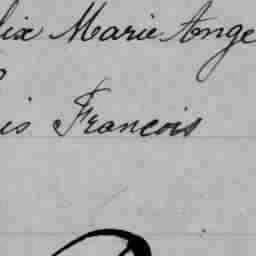 lix Marie Ange
is Francois